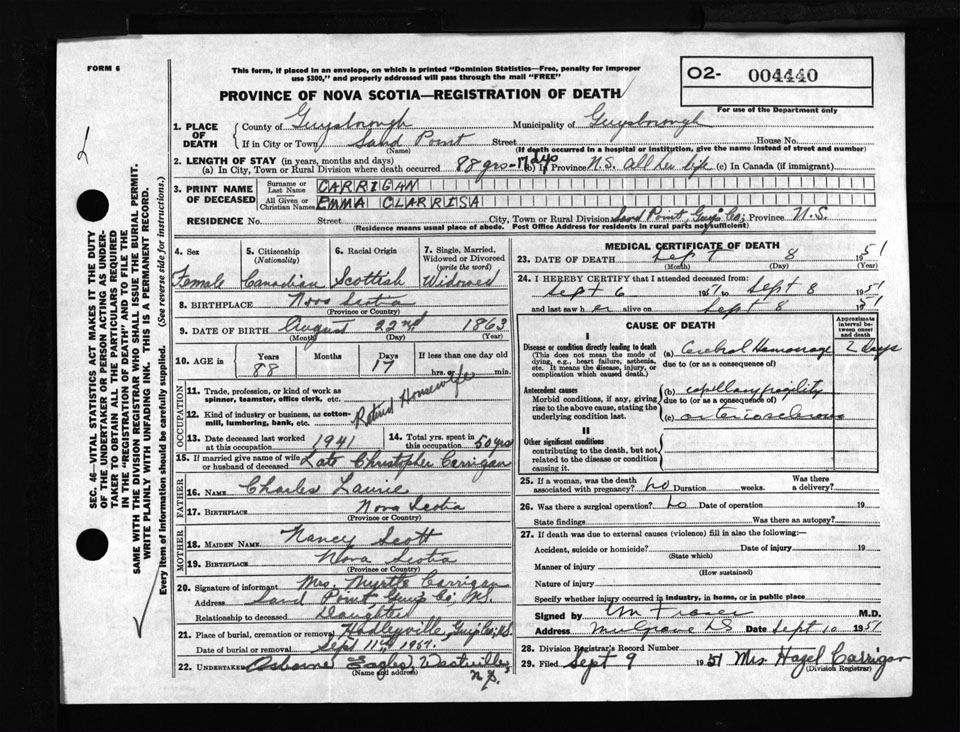 FORM 6
This form, if placed in an envelope, on which is printed "Dominion Statistics—Free, penalty for improper
use $300," and properly addressed will pass through the mail "FREE"
PROVINCE OF NOVA SCOTIA—REGISTRATION OF DEATH
O2- 004440
For use of the Department only
1. PLACE OF DEATH { County of Guysborough Municipality of Guysborough
If in City or Town Sand Point Street House No.
(Name) (If death occurred in a hospital or institution, give the name instead of street and number)
2. LENGTH OF STAY (in years, months and days)
(a) In City, Town or Rural Division where death occurred 88 yrs - 17 dys (b) In Province N.S. all her life (c) In Canada (if immigrant)
3. PRINT NAME OF DECEASED { Surname or Last Name CARRIGAN
All Given or Christian Names EMMA CLARRISA
RESIDENCE No. Street City, Town or Rural Division Sand Point, Guys Co; Province N.S.
(Residence means usual place of abode. Post Office Address for residents in rural parts not sufficient)
4. Sex 5. Citizenship (Nationality) 6. Racial Origin 7. Single, Married, Widowed or Divorced (write the word)
Female Canadian Scottish Widowed
8. BIRTHPLACE Nova Scotia
(Province or Country)
9. DATE OF BIRTH August 22nd 1863
(Month) (Day) (Year)
10. AGE in { Years Months Days If less than one day old
88 17 hrs. or min.
OCCUPATION
11. Trade, profession, or kind of work as
spinner, teamster, office clerk, etc.
Retired Housewife
12. Kind of industry or business, as cotton-
mill, lumbering, bank, etc.
13. Date deceased last worked at this occupation 1941 14. Total yrs. spent in this occupation 50 yrs
15. If married give name of wife
or husband of deceased Late Christopher Carrigan
FATHER
16. NAME Charles Laurie
17. BIRTHPLACE Nova Scotia
(Province or Country)
MOTHER
18. MAIDEN NAME Nancy Scott
19. BIRTHPLACE Nova Scotia
(Province or Country)
20. Signature of informant Mrs. Myrtle Carrigan
Address Sand Point, Guys Co, N.S.
Relationship to deceased Daughter
21. Place of burial, cremation or removal Hadleyville, Guys Co, N.S.
Date of burial or removal Sept 11th 1951.
22. UNDERTAKER Osborne Eagles, Westville, N.S.
(Name and address)
MEDICAL CERTIFICATE OF DEATH
23. DATE OF DEATH Sept 8 1951
(Month) (Day) (Year)
24. I HEREBY CERTIFY that I attended deceased from:
Sept 6 1951 to Sept 8 1951
and last saw her alive on Sept 8 1951
CAUSE OF DEATH
Approximate interval between onset and death
I
Disease or condition directly leading to death (a) Cerebral Hemorrage 2 days
(This does not mean the mode of dying, e.g., heart failure, asthenia, etc. It means the disease, injury, or complication which caused death.)
due to (or as a consequence of)
Antecedent causes (b) capillary fragility
Morbid conditions, if any, giving rise to the above cause, stating the underlying condition last.
due to (or as a consequence of)
(c) arteriosclerosis
II
Other significant conditions
contributing to the death, but not
related to the disease or condition
causing it.
25. If a woman, was the death associated with pregnancy? No Duration weeks. Was there a delivery?
26. Was there a surgical operation? No Date of operation 19
State findings Was there an autopsy?
27. If death was due to external causes (violence) fill in also the following:—
Accident, suicide or homicide? Date of injury 19
(State which)
Manner of injury
(How sustained)
Nature of injury
Specify whether injury occurred in industry, in home, or in public place
Signed by M Fraser M.D.
Address Mulgrave NS Date Sept 10 1951
28. Division Registrar's Record Number
29. Filed Sept 9 1951 Mrs. Hazel Carrigan
(Division Registrar)
SEC. 46—VITAL STATISTICS ACT MAKES IT THE DUTY
OF THE UNDERTAKER OR PERSON ACTING AS UNDER-
TAKER TO OBTAIN ALL THE PARTICULARS REQUIRED
IN THE "REGISTRATION OF DEATH" AND TO FILE THE
SAME WITH THE DIVISION REGISTRAR WHO SHALL ISSUE THE BURIAL PERMIT.
WRITE PLAINLY WITH UNFADING INK. THIS IS A PERMANENT RECORD.
Every item of information should be carefully supplied. (See reverse side for instructions.)